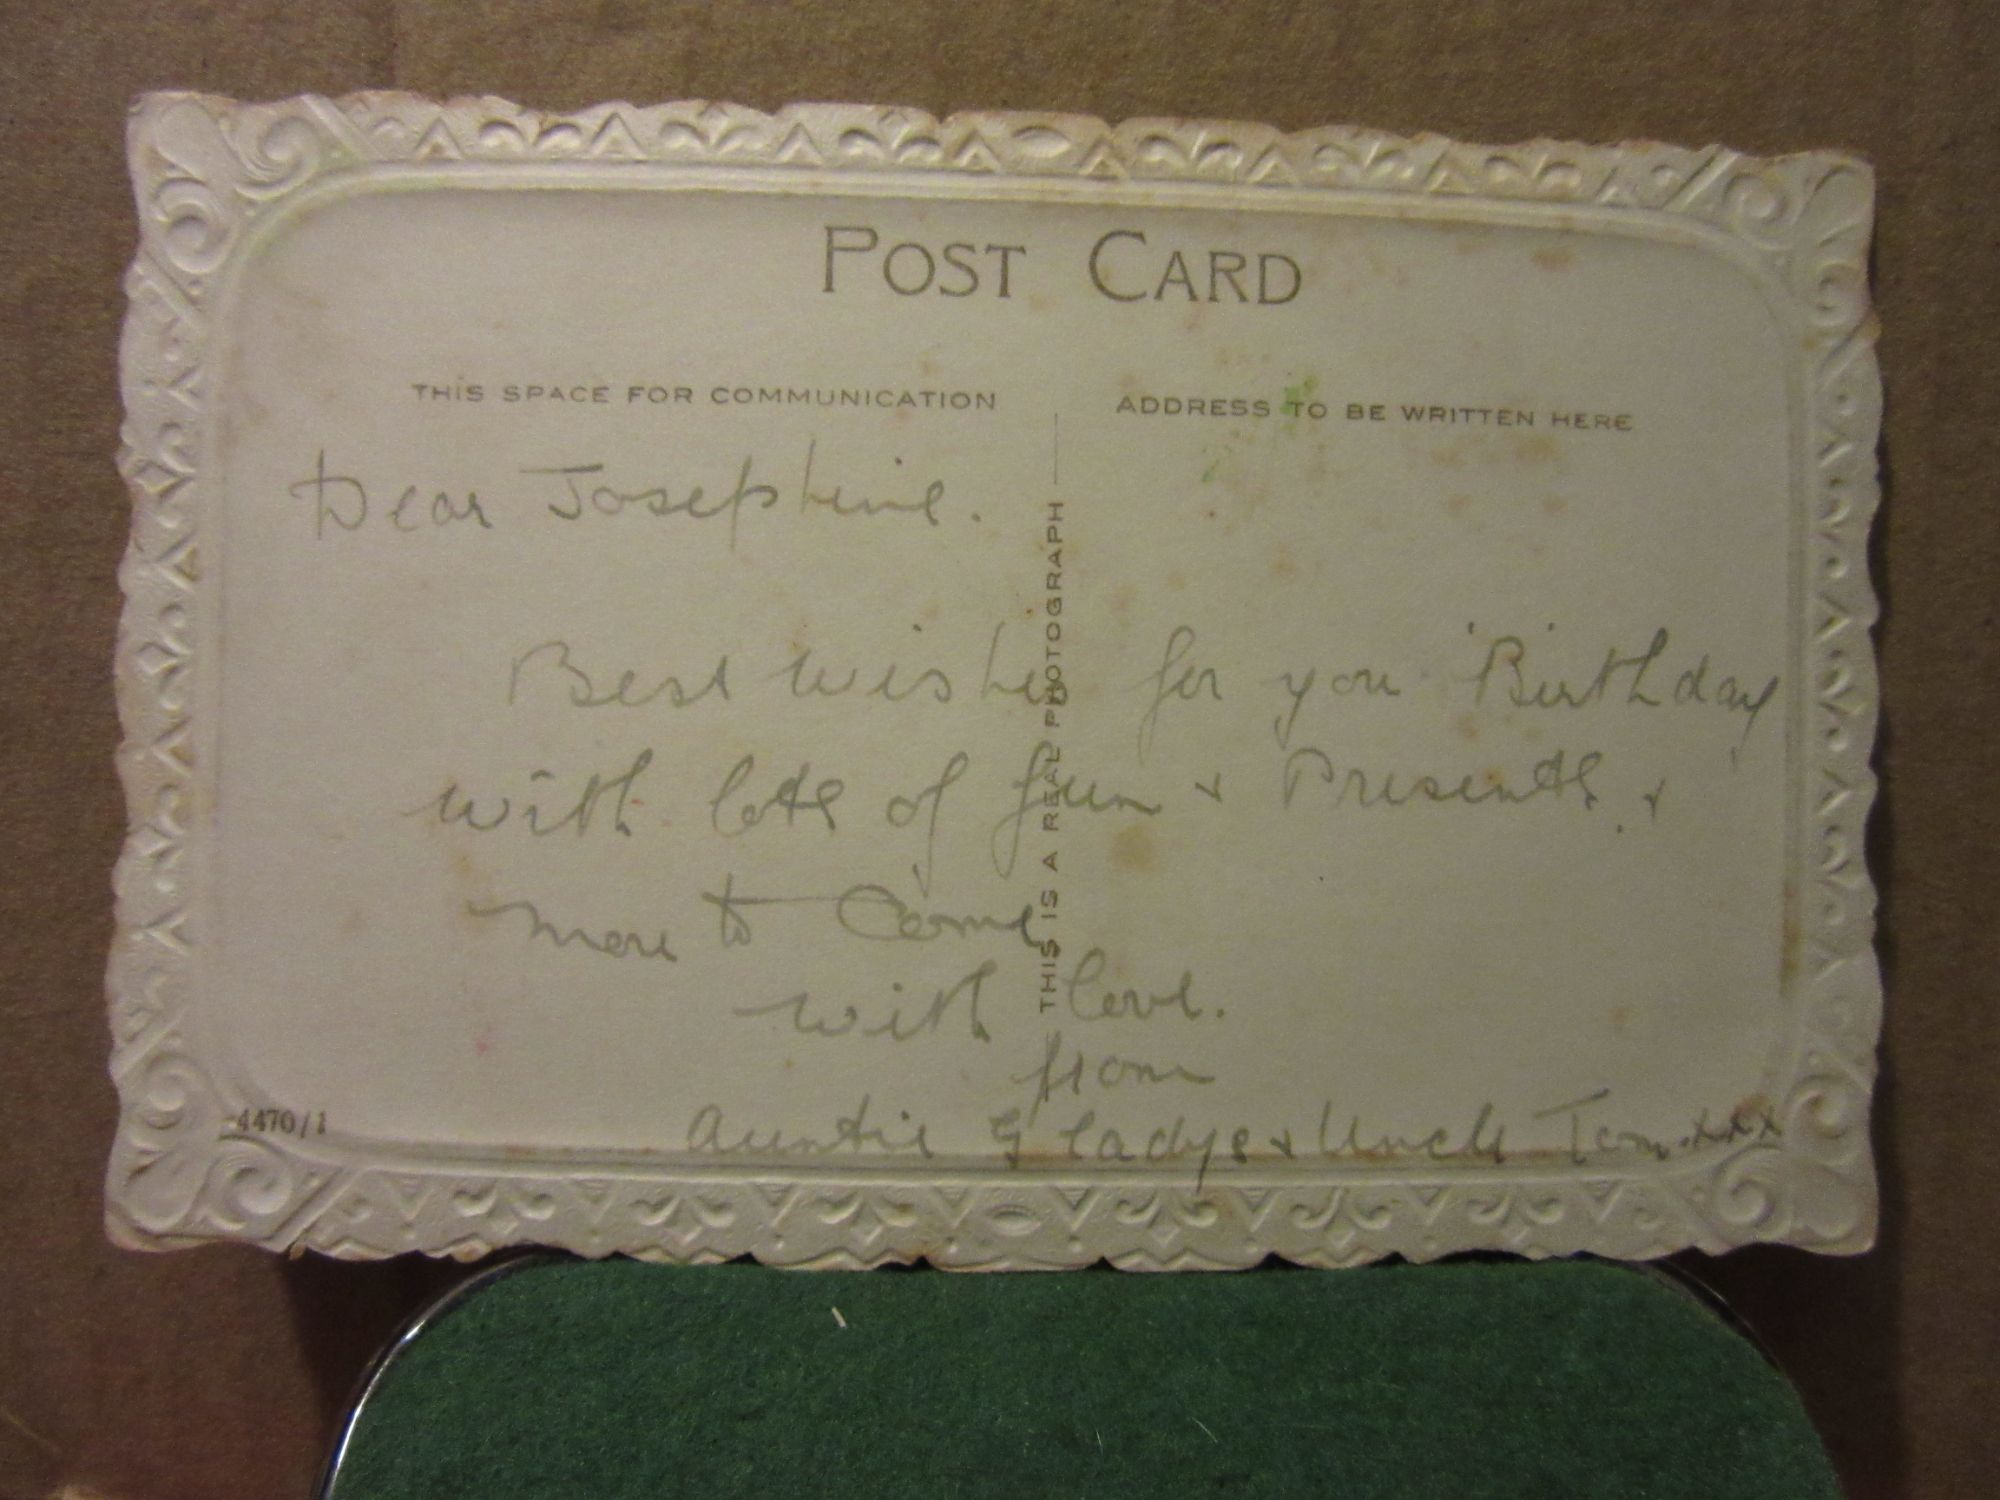 POST CARD
THIS SPACE FOR COMMUNICATION
ADDRESS TO BE WRITTEN HERE
THIS IS A REAL PHOTOGRAPH
Dear Josephine.
Best wishes for you Birthday
with lots of fun & Presents. &
more to Come
with love.
from
Auntie Gladys & Uncle Tom. xxx
4470/1